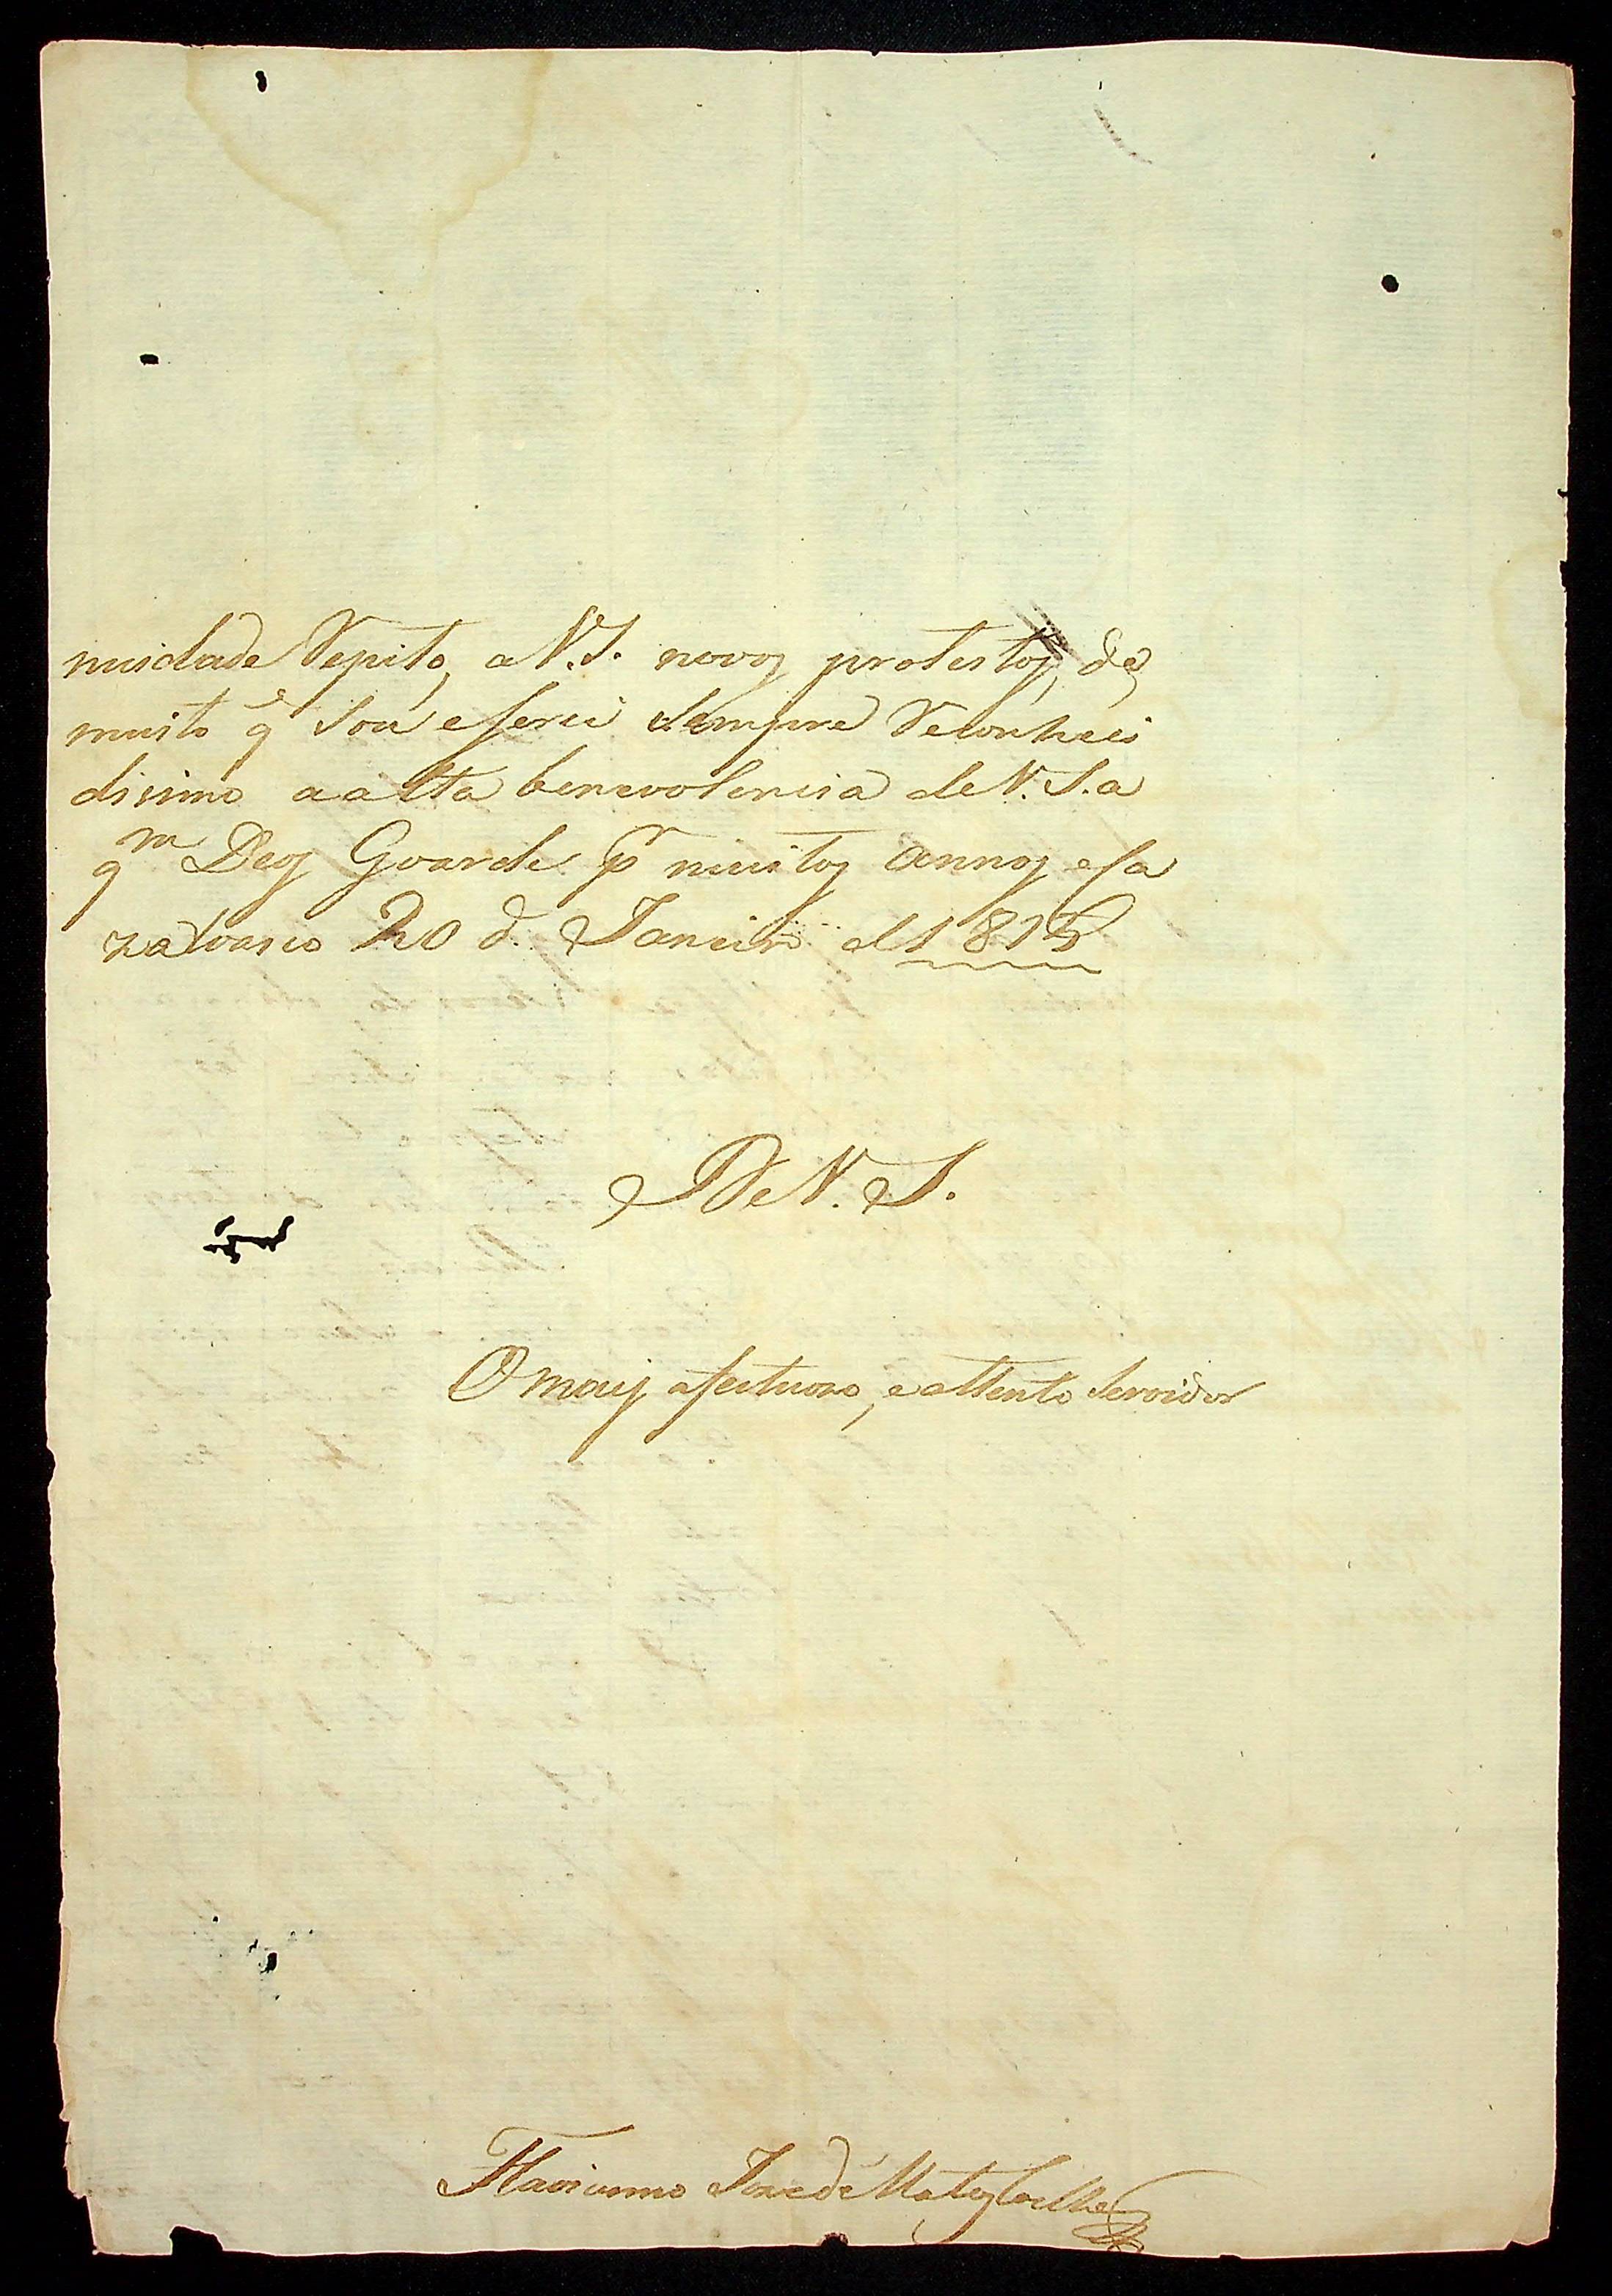 nisidade Repito, a V.S. novos protestos, de
muito q̃ sou e serei sempre Reconheci
disimo a alta benevolencia de V.S. a
qm Deos Goarde pr muitos annos e fa
zalvasco 20 d. Janeiro d 1815
De V.S.
O mais afectuoso, e attento servidor
Flavianno Joze de Matos Coelho